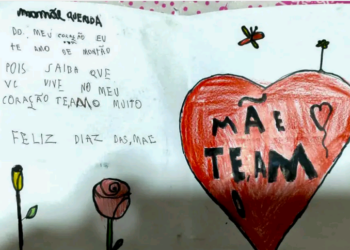 MAMÃE QUERIDA
DO MEU CORAÇÃO EU
TE AMO DE MONTÃO
POIS SAIBA QUE
VC VIVE NO MEU
CORAÇÃO TEAMO MUITO
FELIZ DIAZ DAS, MAE
MÃE
TEAM